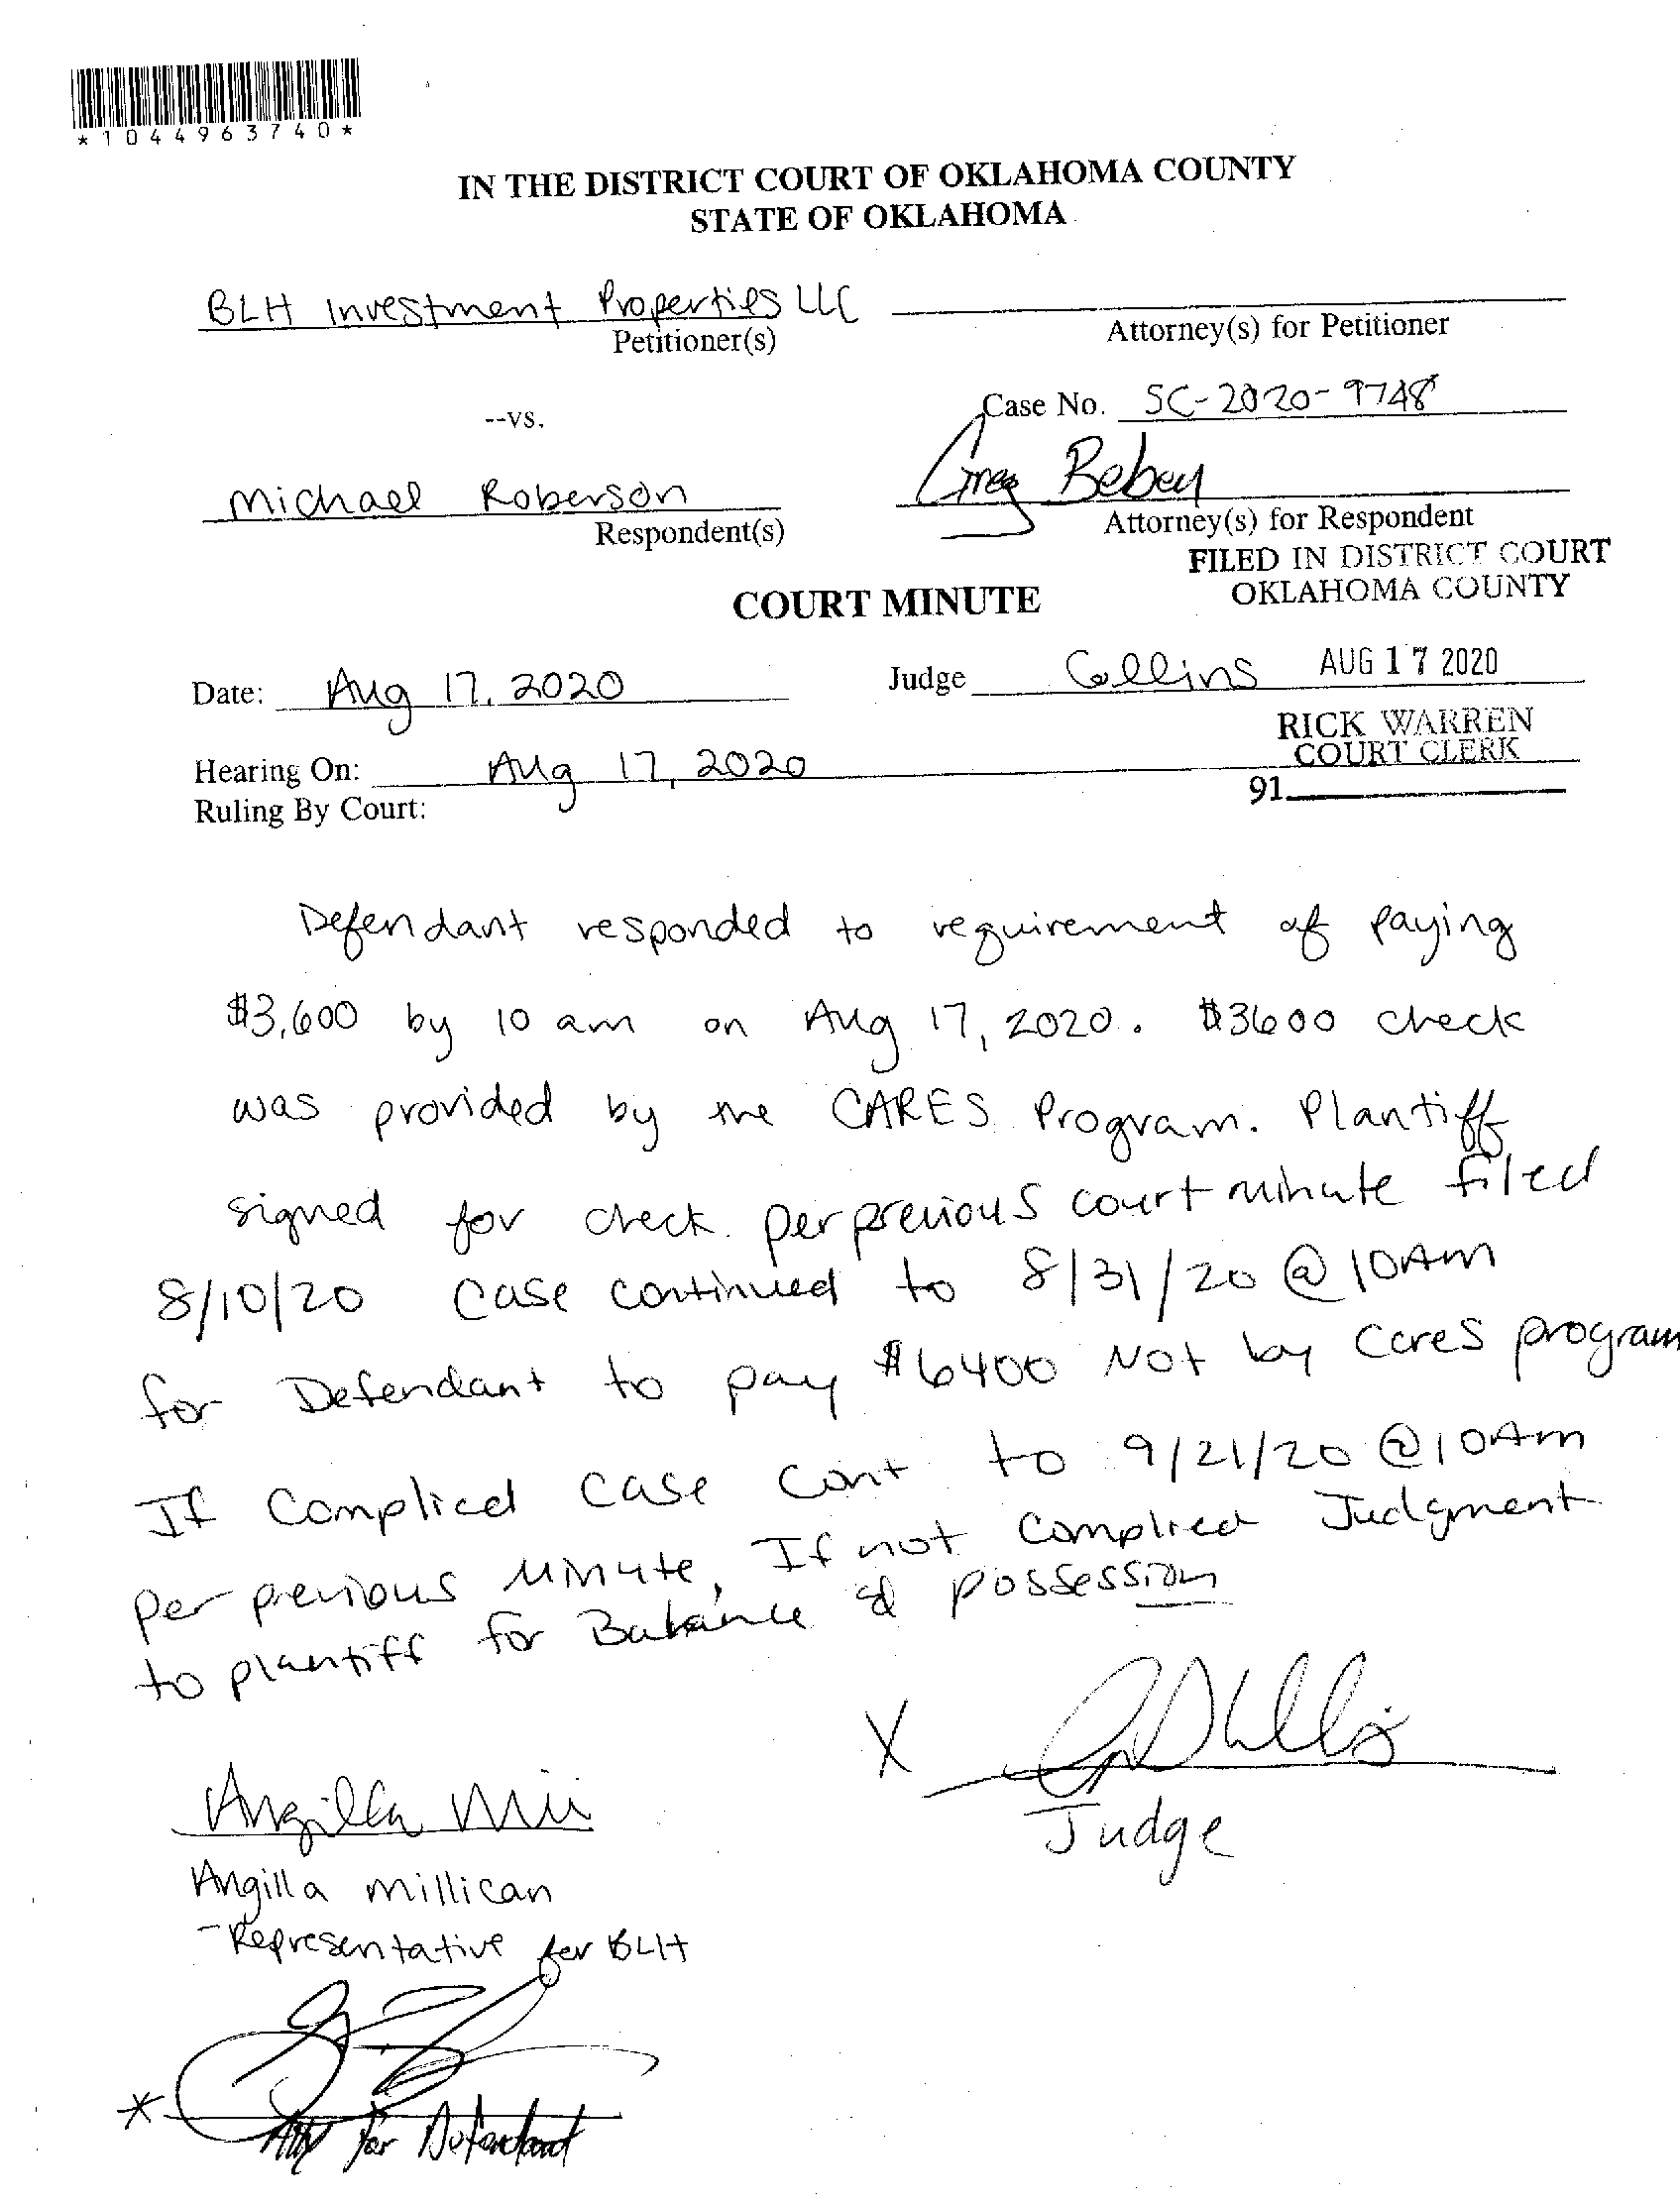 *1044963740*
IN THE DISTRICT COURT OF OKLAHOMA COUNTY
STATE OF OKLAHOMA
BLH Investment Properties LLC
Petitioner(s)
Attorney(s) for Petitioner
--vs.
Case No. SC-2020-9748
Michael Roberson
Respondent(s)
Greg Beben
Attorney(s) for Respondent
FILED IN DISTRICT COURT
OKLAHOMA COUNTY
COURT MINUTE
Date: Aug 17, 2020
Judge Collins
AUG 17 2020
RICK WARREN
COURT CLERK
Hearing On: Aug 17, 2020
91
Ruling By Court:
Defendant responded to requirement of paying
$3,600 by 10 am on Aug 17, 2020. $3600 check
was provided by the CARES Program. Plantiff
signed for check. per previous court minute filed
8/10/20 Case continued to 8/31/20 @ 10AM
for Defendant to pay $6400 Not by Cares program
If Complied Case Cont to 9/21/20 @10Am
per previous Minute, If not Complied Judgment
to plantiff for Balance & possession
X
Judge
Angilla
Angilla Millican
-Representative for BLH
*
Atty for Defendant